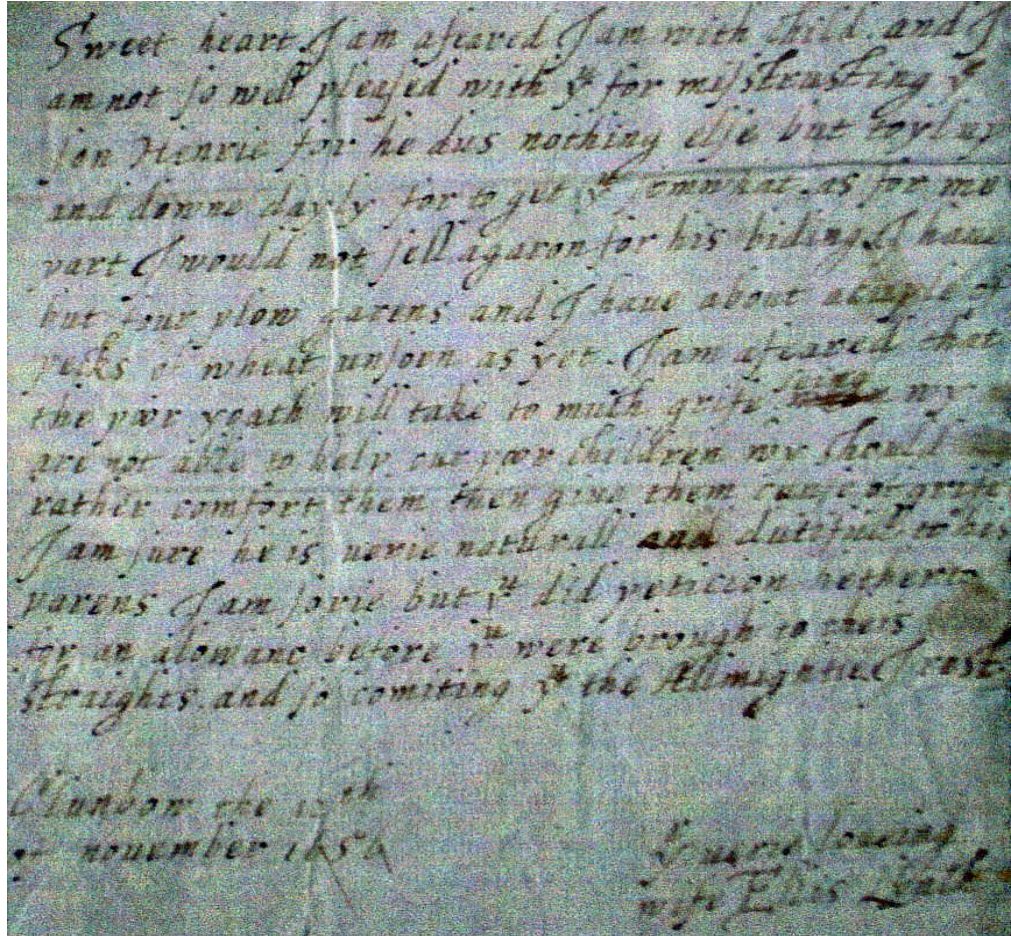 Sweet heart I am afeared I am with Child and I
am not so well pleased with yu for misstrusting yr
son Henrie for he dus nothing else but toyl up
and downe dayly for to get yu somwhat as for me
part I would not sell agaron for his biding I haue
but four plow garens and I haue about acuple of
pecks of wheat unsorn as yet. I am afeared that
the poor youth will take to much grife seing wy
are not able to help our poor Children wy should
rather comfort them then giue them cause of grife
I am sure he is uerie naturall and dutifull to his
parens I am sorie but yu did peticion hether
for an alowanc before yu were brough to theis
straights and so comiting yu the Allmightie I rest
Clunbow the 12th
of nouember 1656
Yr uerie loueing
wife Ellis